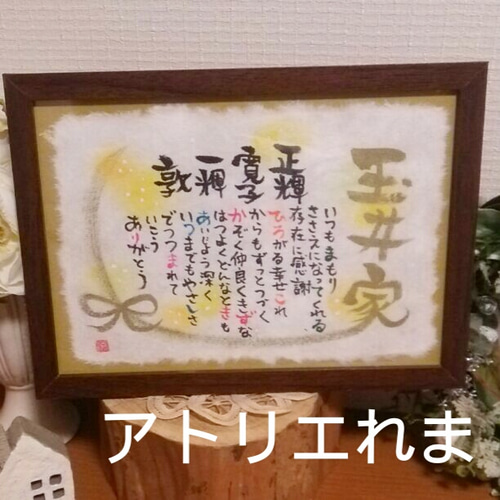 玉井家
正輝
寛子
一輝
敦
いつもまもり
ささえになってくれる
存在に感謝
ひろがる幸せこれ
からもずっとつづく
かぞく仲良くきずな
はつよくどんなときも
あいじょう深く
いつまでもやさしさ
でつつまれて
いこう
ありがとう
アトリエれま